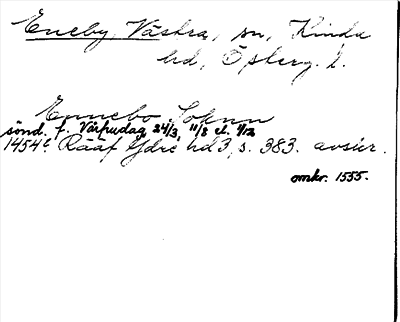 Eneby, Västra, sn, Kinda
hd, Österg. l.
Ennebo Soknn
sönd. f. Vårfrudag 24/3, 11/8 el. 9/12
1454 Rääf Ydre hd 3, s. 383. avskr.
omkr. 1555.